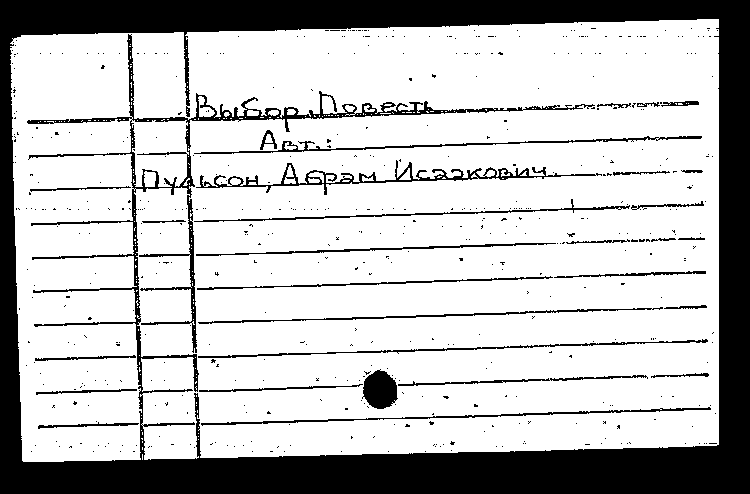 Выбор. Повесть
Авт.:
Пульсон, Абрам Исаакович.